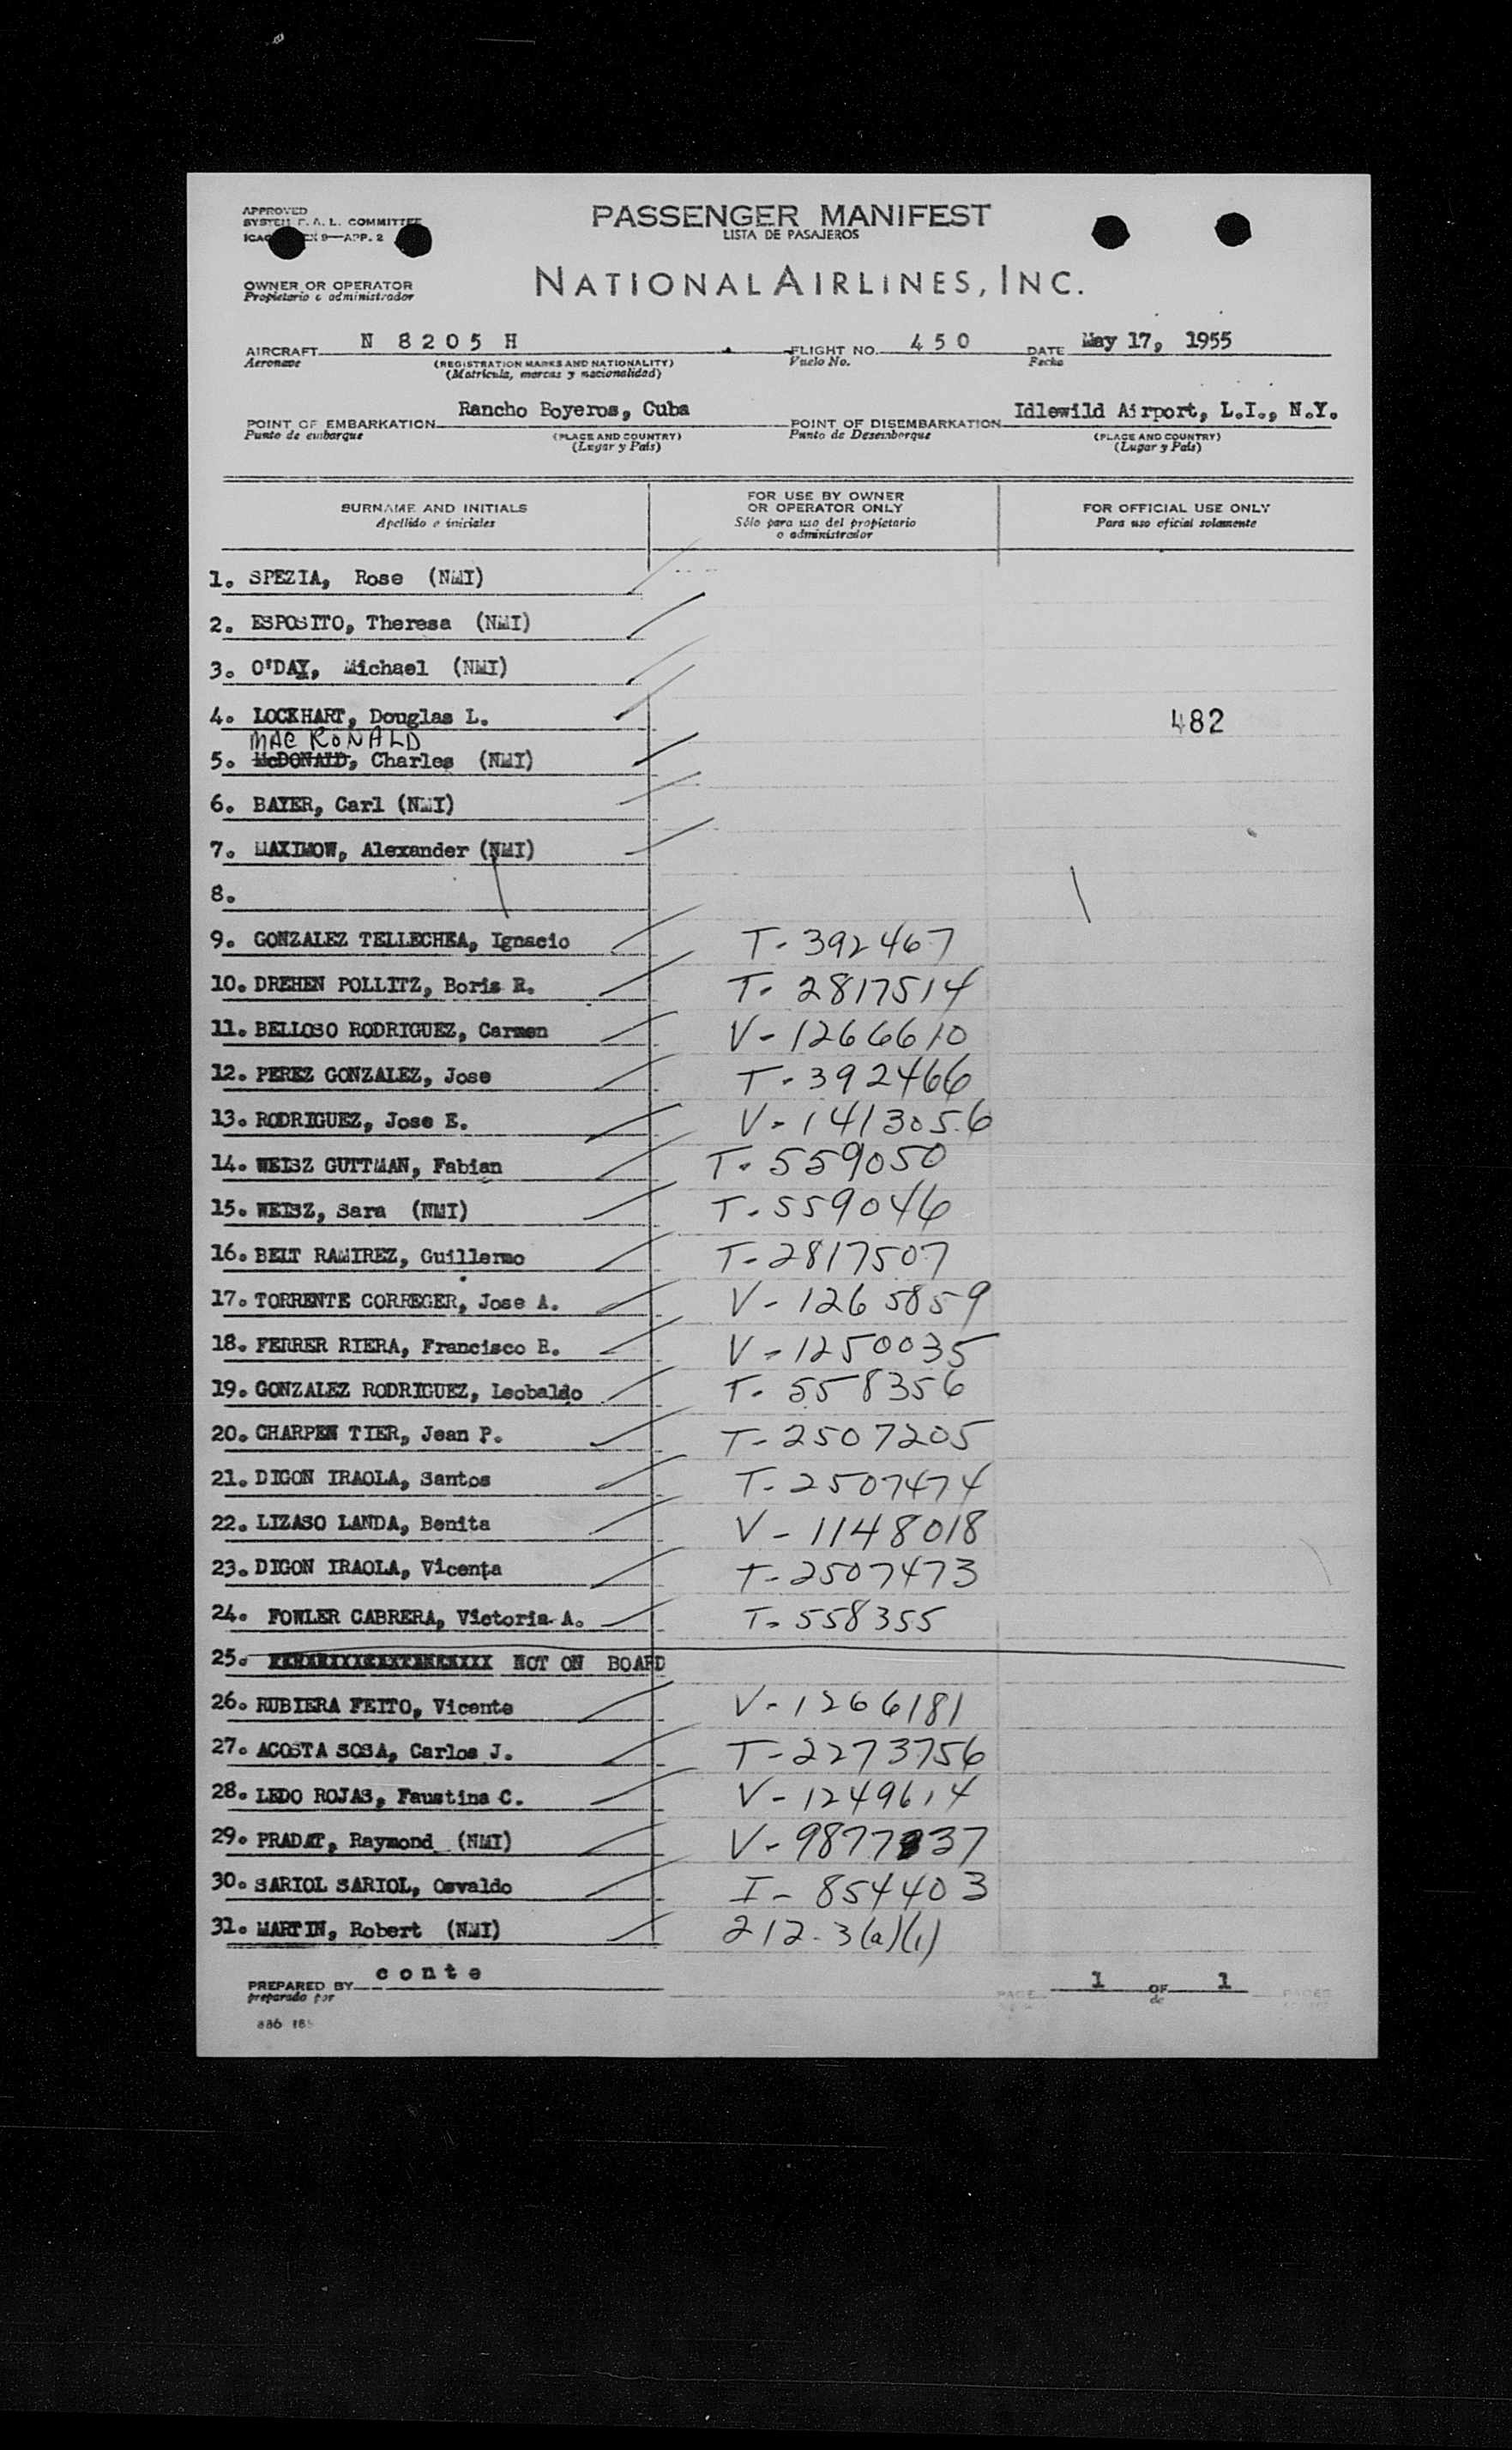 APPROVED
SYSTEM F. A. L. COMMITTEE
9—APP. 2
PASSENGER MANIFEST
LISTA DE PASAJEROS
OWNER OR OPERATOR
Propietario o administrador
NATIONAL AIRLINES, INC.
AIRCRAFT N 8205 H FLIGHT NO. 450 DATE May 17, 1955
Aeronave (REGISTRATION MARKS AND NATIONALITY) Vuelo No. Fecha
(Matrícula, marcas y nacionalidad)
POINT OF EMBARKATION Rancho Boyeros, Cuba POINT OF DISEMBARKATION Idlewild Airport, L.I., N.Y.
Punto de embarque (PLACE AND COUNTRY) Punto de Desembarque (PLACE AND COUNTRY)
(Lugar y País) (Lugar y País)
SURNAME AND INITIALS
Apellido e iniciales
FOR USE BY OWNER
OR OPERATOR ONLY
Sólo para uso del propietario
o administrador
FOR OFFICIAL USE ONLY
Para uso oficial solamente
1. SPEZIA, Rose (NMI)
2. ESPOSITO, Theresa (NMI)
3. O'DAY, Michael (NMI)
4. LOCKHART, Douglas L. 482
MAC RONALD
5. McDONALD, Charles (NMI)
6. BAYER, Carl (NMI)
7. MAXIMOW, Alexander (NMI)
8.
9. GONZALEZ TELLECHEA, Ignacio T- 392467
10. DREHEN POLLITZ, Boris R. T- 2817514
11. BELLOSO RODRIGUEZ, Carmen V-1266610
12. PEREZ GONZALEZ, Jose T-392466
13. RODRIGUEZ, Jose E. V-1413056
14. WEISZ GUTTMAN, Fabian T-559050
15. WEISZ, Sara (NMI) T-559046
16. BELT RAMIREZ, Guillermo T-2817507
17. TORRENTE CORREGER, Jose A. V-1265859
18. FERRER RIERA, Francisco R. V-1250035
19. GONZALEZ RODRIGUEZ, Leobaldo T- 558356
20. CHARPEN TIER, Jean P. T-2507205
21. DIGON IRAOLA, Santos T-2507474
22. LIZASO LANDA, Benita V-1148018
23. DIGON IRAOLA, Vicenta T-2507473
24. FOWLER CABRERA, Victoria A. T-558355
25. NOT ON BOARD
26. RUBIERA FEITO, Vicente V-1266181
27. ACOSTA SOSA, Carlos J. T-2273756
28. LEDO ROJAS, Faustina C. V-1249614
29. PRADAT, Raymond (NMI) V-9877837
30. SARIOL SARIOL, Osvaldo I-854403
31. MARTIN, Robert (NMI) 212.3(a)(1)
PREPARED BY conte PAGE 1 OF 1 PAGES
preparado por de